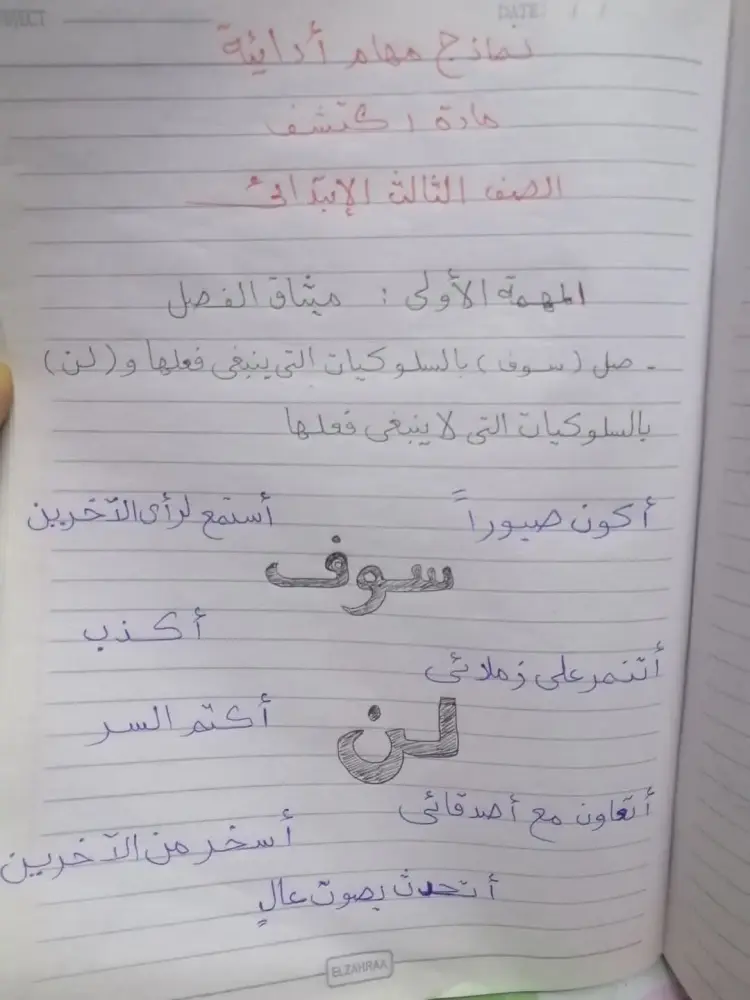 DATE / /
نماذج مهام أدائية
مادة اكتشف
الصف الثالث الإبتدائى
المهمة الأولى : ميثاق الفصل
- صل (سوف) بالسلوكيات التى ينبغى فعلها و (لن)
بالسلوكيات التى لا ينبغى فعلها
أكون صبوراً
أستمع لرأى الآخرين
سوف
أكذب
أتنمر على زملائى
أكتم السر
لن
أتعاون مع أصدقائى
أسخر من الآخرين
أتحدث بصوت عالٍ
ELZAHRAA